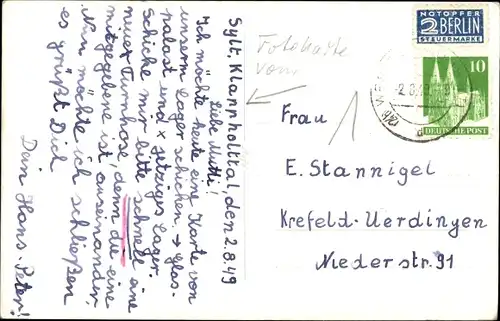 Sylt, Klappholttal, den 2.8.49
Liebe Mutti!
Ich möchte heute eine Karte von
unserm Lager schicken. → Glas-
palast und x jetziges Lager.
Schicke mir bitte schnell eine
neue Turnhose, denn die eine
mitgegebene ist auseinander.
Nun möchte ich schließen
es grüßt Dich
Dein Hans-Peter!
Fotokarte
vom
NOTOPFER
2 BERLIN
STEUERMARKE
10
DEUTSCHE POST
Frau
E. Stannigel
Krefeld-Uerdingen
Niederstr. 91